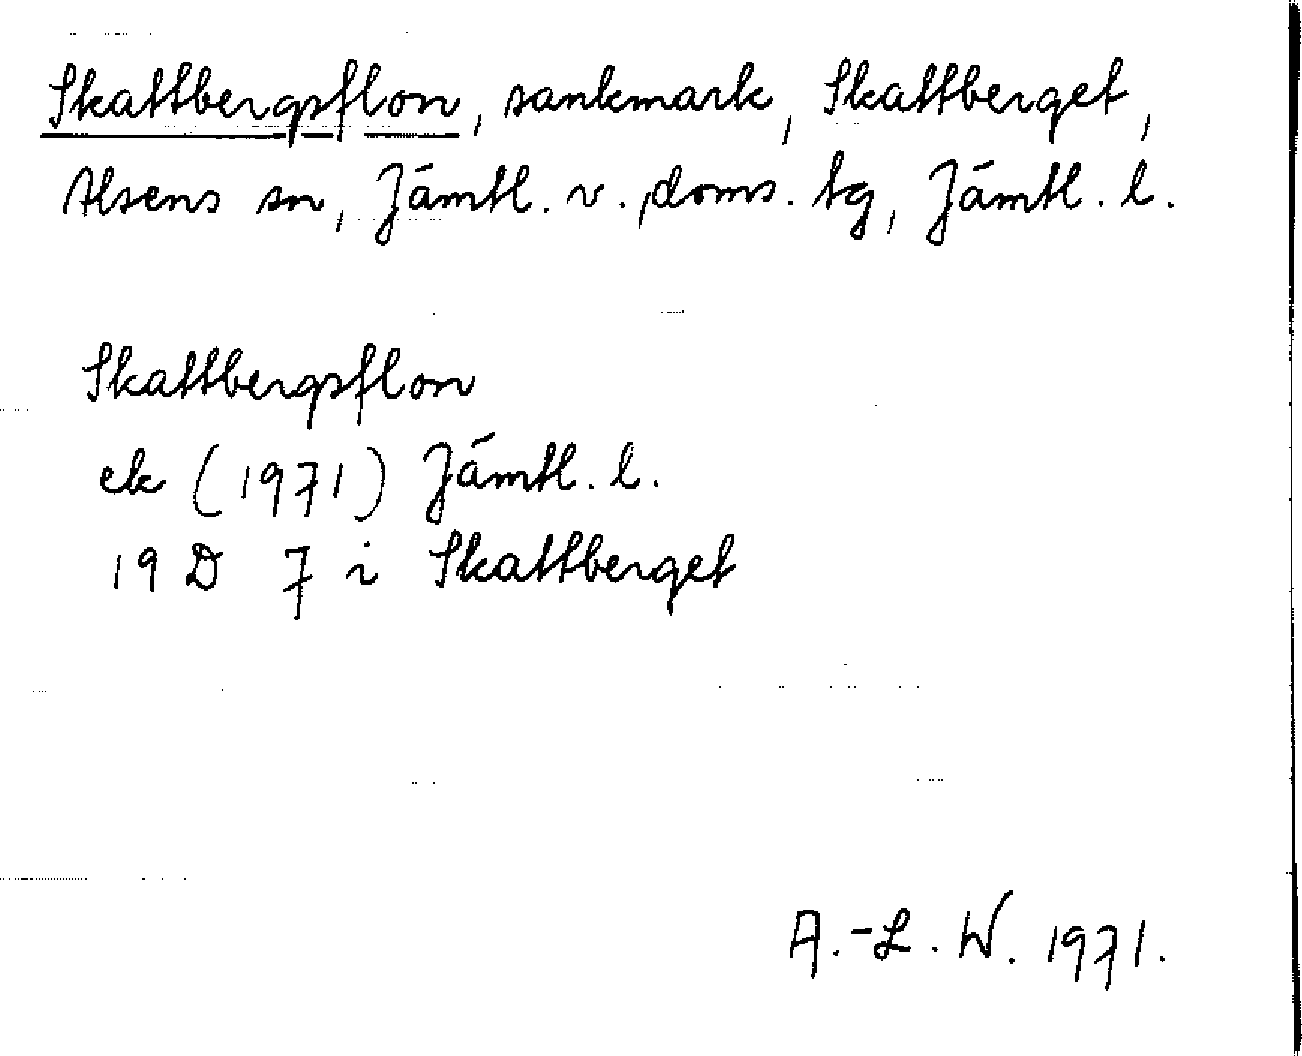 Skattbergsflon, sankmark, Skattberget,
Alsens sn, Jämtl. v. doms. tg, Jämtl. l.
Skattbergsflon
ek (1971) Jämtl. l.
19 D 7 i Skattberget
A.-L. W. 1971.